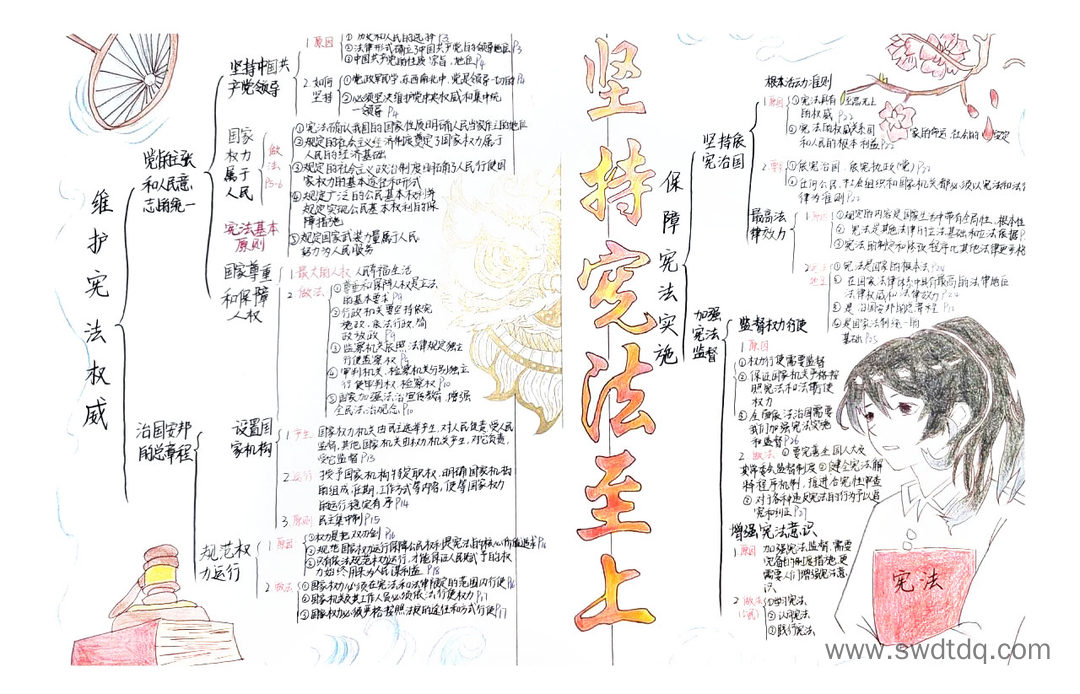 坚持宪法至上
维护宪法权威
党的主张
和人民意
志的统一
坚持中国共
产党领导
1 原因
① 历史和人民的选择 P3
② 法律形式确立了中国共产党的领导地位 P3
③ 中国共产党的性质 宗旨, 地位 P4
2. 如何
坚持
① 党政军民学, 东西南北中, 党是领导一切的 P4
② 必须坚决维护党中央权威和集中统
一领导 P4
国家
权力
属于
人民
做
法
P5-6
宪法基本
原则
① 宪法确认我国的国家性质, 明确人民当家作主的地位
② 规定的社会主义经济制度奠定了国家权力属于
人民的经济基础
③ 规定的社会主义政治制度明确了人民行使国
家权力的基本途径和形式
④ 规定广泛的公民基本权利并
规定实现公民基本权利的保
障措施
⑤ 规定国家武装力量属于人民
努力为人民服务
国家尊重
和保障
人权
1 最大的人权 人民幸福生活
2. 做法
① 尊重和保障人权是立法
的基本要求 P9
② 行政机关要坚持依宪
施政、依法行政、简
政放权 P9
③ 监察机关依照法律规定独立
行使监察权 P9
④ 审判机关、检察机关分别独立
行使审判权、检察权 P10
⑤ 国家加强法治宣传教育, 增强
全民法治观念 P10
治国安邦
的总章程
设置国
家机构
1 产生
国家权力机关由民主选举产生, 对人民负责, 受人民
监督, 其他国家机关由权力机关产生, 对它负责,
受它监督 P13
2. 运行
授予国家机构特定职权, 明确国家机构
的组成、任期、工作方式等内容, 使等国家权力
的运行稳定有序 P14
3. 原则 民主集中制 P15
规范权
力运行
1 原因
① 权力是把双刃剑 P16
② 规范国家权力运行保障公民权利是宪法的核心价值追求 P16
③ 只有依法规范权力运行, 才能保证人民赋予的权
力始终用来为人民谋利益 P16
2. 做法
① 国家权力必须在宪法和法律限定的范围内行使 P16
② 国家机关及其工作人员必须依法行使权力 P17
③ 国家权力必须严格按照法定的途径和方式行使 P17
保障宪法实施
坚持依
宪治国
根本活动准则
1 原因
① 宪法具有至高无上
的权威 P22
② 宪法的权威关系国家的命运、社会的安定
和人民的根本利益 P22
① 依宪治国 依宪执政(党) P22
② 任何公民、社会组织和国家机关都必须以宪法和法
律为准则 P22
最高法
律效力
1 原因
① 规定的内容是国家生活中带有全局性、根本性
② 宪法是其他法律的立法基础和立法依据 P
③ 宪法的制定和修改程序比其他法律更严格
2
地位
① 宪法是国家的根本法 P24
② 在国家法律体系中具有最高的法律地位
法律权威和法律效力 P24
③ 是治国安邦的总章程
④ 是国家法制统一的
基础 P25
加强
宪法
监督
监督权力行使
1 原因
① 权力行使需要监督
② 保证国家机关严格按
照宪法和法律行使
权力
③ 全面依法治国需要
我们加强宪法实施
和监督 P26
2 做法 ① 要完善全国人大及
其常委会监督制度 ② 健全宪法解
释程序机制, 推进合宪性审查
③ 对于各种违反宪法的行为予以追
究和纠正 P27
增强宪法意识
1 原因 加强宪法监督, 需要
完备的制度措施, 更
需要人们增强宪法意
识
2 做法
① 学习宪法
② 认同宪法
③ 践行宪法
宪法
www.swdtdq.com